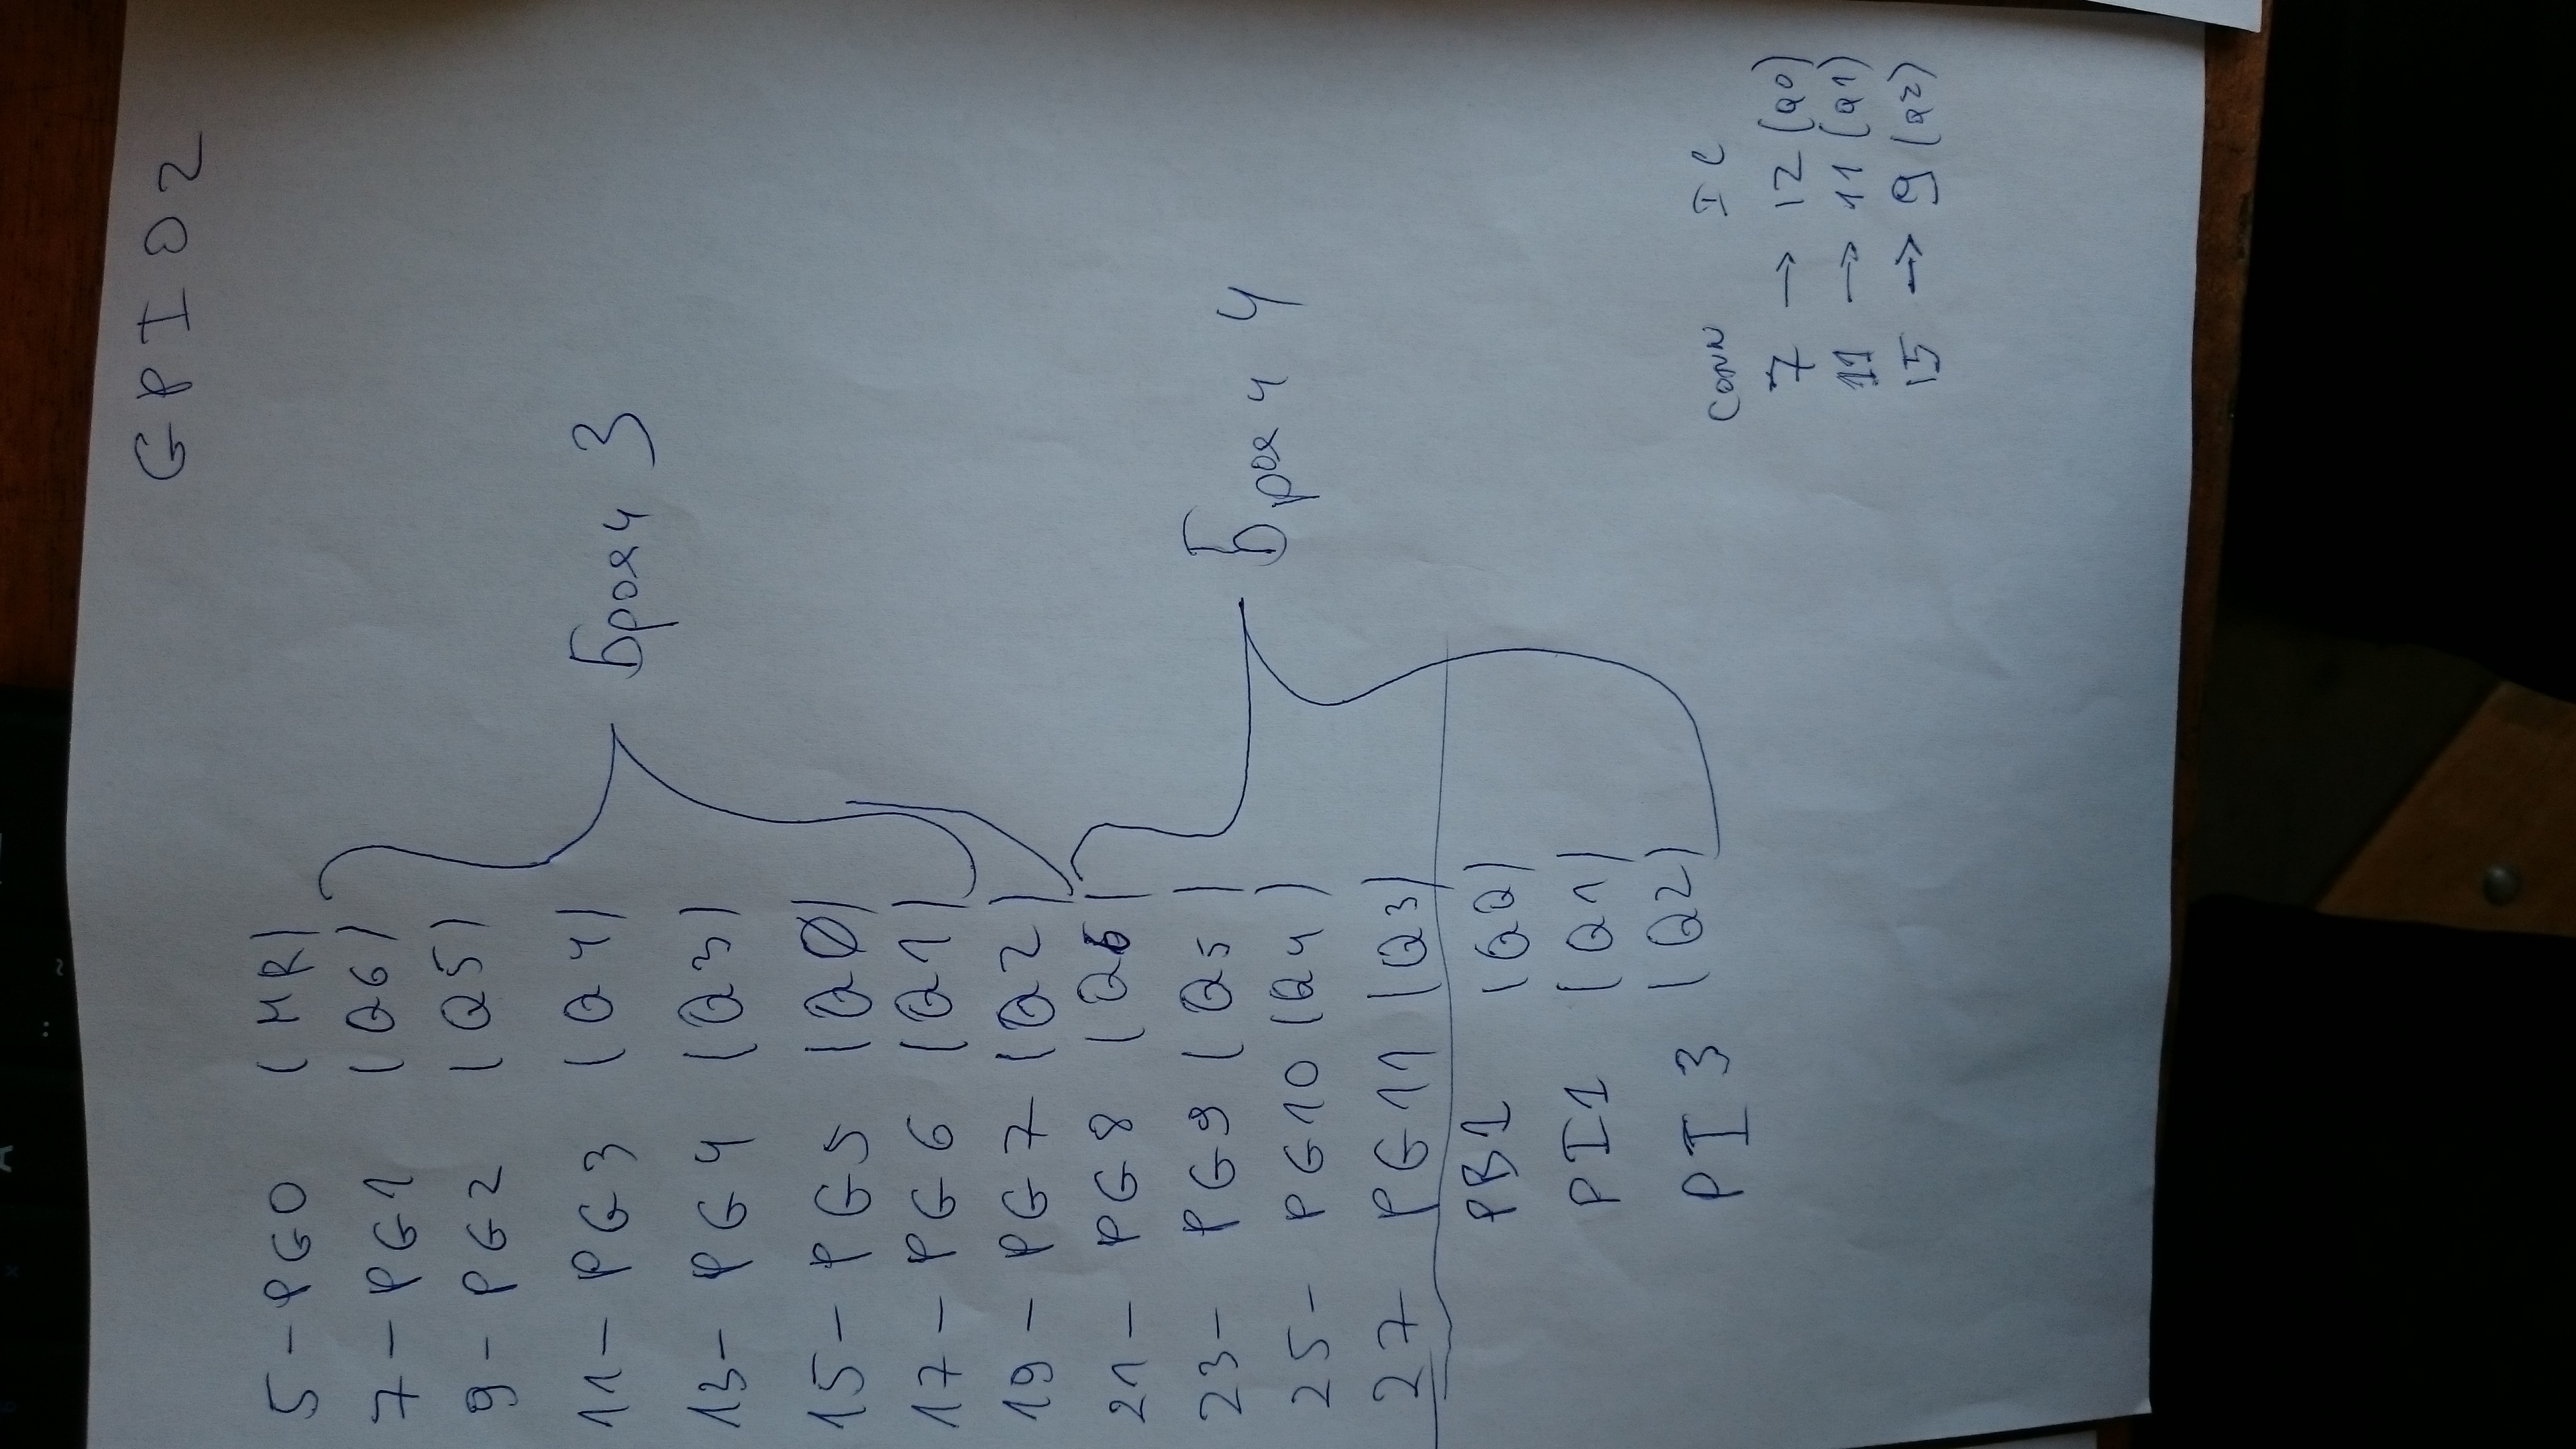 GPIO2
5 - PG0 (MR)
7 - PG1 (Q6)
9 - PG2 (Q5)
11 - PG3 (Q4)
13 - PG4 (Q3)
15 - PG5 (Q0)
17 - PG6 (Q1)
19 - PG7 (Q2)
Брояч 3
21 - PG8 (Q6)
23 - PG9 (Q5)
25 - PG10 (Q4)
27 PG11 (Q3)
PB1 (Q0)
PI1 (Q1)
PI3 (Q2)
Брояч 4
Conn IC
7 → 12 (Q0)
11 → 11 (Q1)
15 → 9 (Q2)